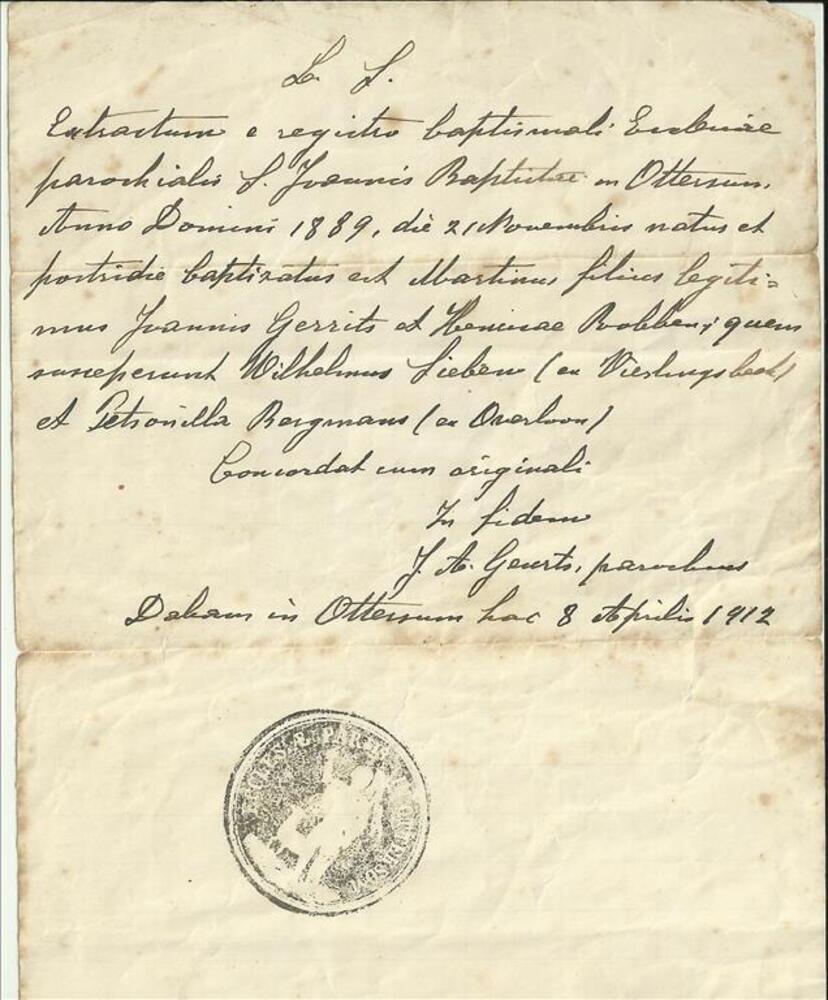 L. S.
Extractum e registro baptismali Ecclesiae
parochialis S. Joannis Baptistae in Ottersum.
Anno Domini 1889, die 21 Novembris natus et
postridie baptizatus est Martinus filius legiti=
mus Joannis Gerrits et Henricae Robben; quem
susceperunt Wilhelmus Lieben (ex Vierlingsbeek)
et Petronilla Bergmans (ex Overloon)
Concordat cum originali
In fidem
J. A. Geurts, parochus
Datum in Ottersum hac 8 Aprilis 1912